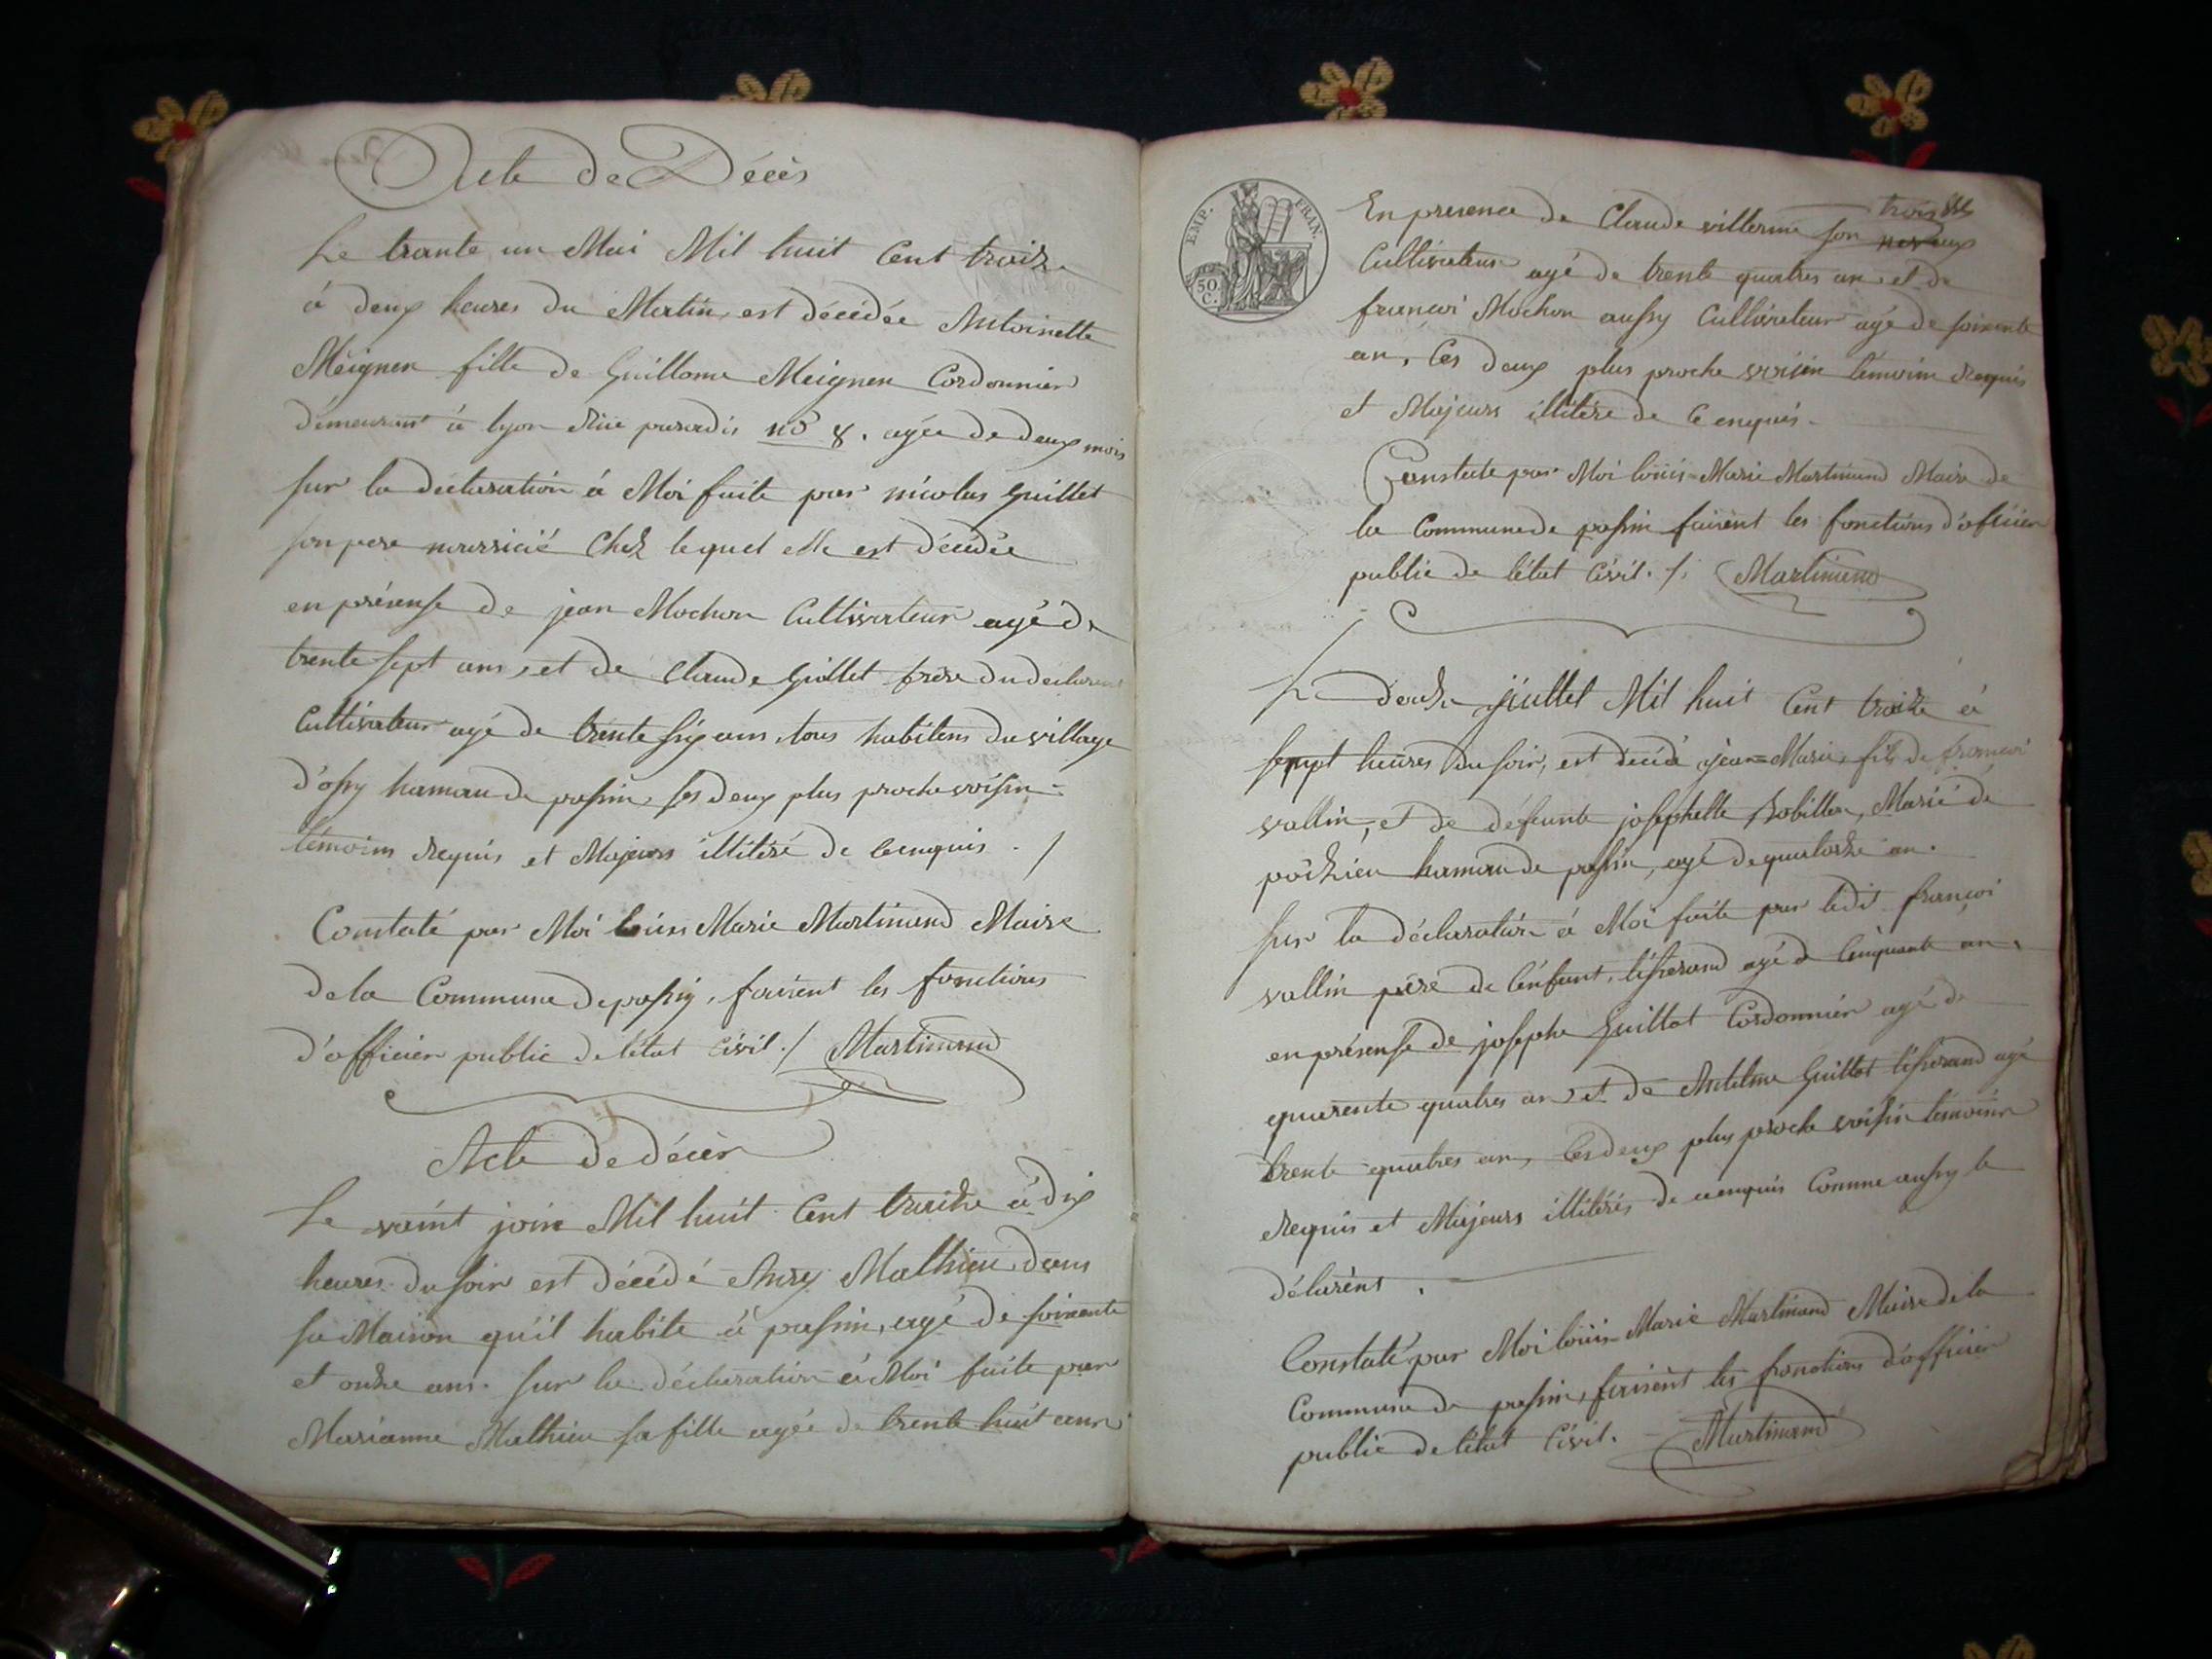 Acte de Décès
Le trante un Mai Mil huit Cent traize
à deux heures du Matin, est décédée Antoinette
Meignen fille de Guillome Meignen Cordonnier
démeurant à lyon Rue paradis no 8. agée de deux mois
sur la déclaration à Moi faite par nicolas Guillet
son pere nourricié Chez lequel elle est décédée
en présense de jean Mochon Cultivateur agé de
trente sept ans, et de Claude Guillet frère du déclarent
Cultivateur agé de trente six ans, tous habitens du village
d'ossy hamau de passin, ses deux plus proche voisin
témoins Requis et Majeurs illitéré de cenquis . /
Constaté par Moi louis Marie Martinand Maire
de la Commune de passin, faisent les fonctions
d'officier public de létat civil ./ Martinand
Acte de décès
Le vaint join Mil huit Cent traize à dix
heures du soir est décédé Mathieu dans
sa Maison qu'il habite à passin, agé de soixante
et onze ans. sur la déclaration à Moi faite par
Marianne Mathieu sa fille agée de trente huit ans
EMP. FRAN.
50 C.
trois
En presence de Claude villerme son neveux
Cultivateur agé de trente quatres an et de
francoi Mochon aussy Cultivateur agé de soixente
an, Ces deux plus proche voisin témoin Requis
et Majeurs illitére de Cenquis.
Constate par Moi louis-Marie Martinand Maire de
la Commune de passin faisent les fonctions d'officier
public de létat Civil ./. Martinand
Le douze juillet Mil huit Cent traize à
sept heures du soir, est décédé jean-Marie, fils de francoi
vallin, et de défeunte josephette Robillon, Marié de
poizieu hamau de passin, agé de quatorze an.
sur la déclaration à Moi faite par ledit françoi
vallin père de l'énfant, tisserand agé de Cinquante an,
en présense de josephe Guillot Cordonnier agé de
quarente quatres an et de Antelme Guillot tisserand agé
trente quatres an, Ces deux plus proche voisin témoins
Requis et Majeurs illitérés de cenquis Comme aussy le
délarént .
Constaté par Moi louis-Marie Martinand Maire de la
Commune de passin, faisent les fonctions d'officier
public de létat Civil. Martinand